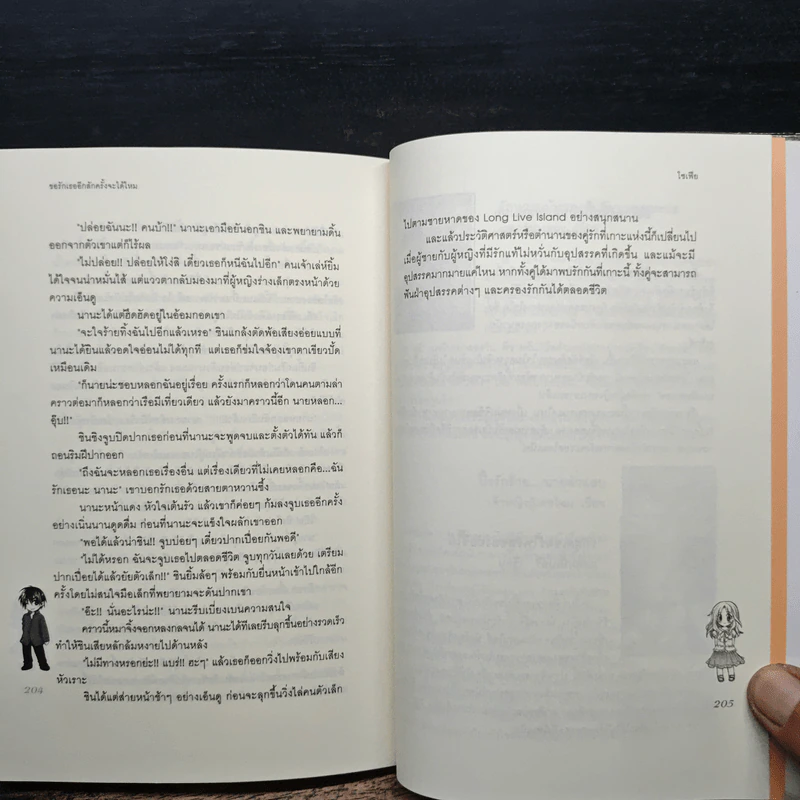 ขอรักเธออีกสักครั้งจะได้ไหม
"ปล่อยฉันนะ!! คนบ้า!!" นานะเอามือยันอกชิน และพยายามดิ้น
ออกจากตัวเขาแต่ก็ไร้ผล
"ไม่ปล่อย!! ปล่อยให้โง่สิ เดี๋ยวเธอก็หนีฉันไปอีก" คนเจ้าเล่ห์ยิ้ม
ได้ใจจนน่าหมั่นไส้ แต่แววตากลับมองมาที่ผู้หญิงร่างเล็กตรงหน้าด้วย
ความเอ็นดู
นานะได้แต่ฮึดฮัดอยู่ในอ้อมกอดเขา
"จะใจร้ายทิ้งฉันไปอีกแล้วเหรอ" ชินแกล้งตัดพ้อเสียงอ่อยแบบที่
นานะได้ยินแล้วอดใจอ่อนไม่ได้ทุกที แต่เธอก็ข่มใจจ้องเขาตาเขียวปั้ด
เหมือนเดิม
"ก็นายน่ะชอบหลอกฉันอยู่เรื่อย ครั้งแรกก็หลอกว่าโดนคนตามล่า
คราวต่อมาก็หลอกว่าเรือมีเที่ยวเดียว แล้วยังมาคราวนี้อีก นายหลอก...
อุ๊บ!!"
ชินชิงจูบปิดปากเธอก่อนที่นานะจะพูดจบและตั้งตัวได้ทัน แล้วก็
ถอนริมฝีปากออก
"ถึงฉันจะหลอกเธอเรื่องอื่น แต่เรื่องเดียวที่ไม่เคยหลอกคือ...ฉัน
รักเธอนะ นานะ" เขาบอกรักเธอด้วยสายตาหวานซึ้ง
นานะหน้าแดง หัวใจเต้นรัว แล้วเขาก็ค่อยๆ ก้มลงจูบเธออีกครั้ง
อย่างเนิ่นนานดูดดื่ม ก่อนที่นานะจะแข็งใจผลักเขาออก
"พอได้แล้วน่าชิน!! จูบบ่อยๆ เดี๋ยวปากเปื่อยกันพอดี"
"ไม่ได้หรอก ฉันจะจูบเธอไปตลอดชีวิต จูบทุกวันเลยด้วย เตรียม
ปากเปื่อยได้แล้วยัยตัวเล็ก!!" ชินยิ้มล้อๆ พร้อมกับยื่นหน้าเข้าไปใกล้อีก
ครั้งโดยไม่สนใจมือเล็กที่พยายามจะดันปากเขา
"อ๊ะ!! นั่นอะไรน่ะ!!" นานะรีบเบี่ยงเบนความสนใจ
คราวนี้หมาจิ้งจอกหลงกลจนได้ นานะได้ทีเลยรีบลุกขึ้นอย่างรวดเร็ว
ทำให้ชินเสียหลักล้มหงายไปด้านหลัง
"ไม่มีทางหรอกย่ะ!! แบร่!! ฮะๆ" แล้วเธอก็ออกวิ่งไปพร้อมกับเสียง
หัวเราะ
ชินได้แต่ส่ายหน้าช้าๆ อย่างเอ็นดู ก่อนจะลุกขึ้นวิ่งไล่คนตัวเล็ก
204
โซเฟีย
ไปตามชายหาดของ Long Live Island อย่างสนุกสนาน
และแล้วประวัติศาสตร์หรือตำนานของคู่รักที่เกาะแห่งนี้ก็เปลี่ยนไป
เมื่อผู้ชายกับผู้หญิงที่มีรักแท้ไม่หวั่นกับอุปสรรคที่เกิดขึ้น และแม้จะมี
อุปสรรคมากมายแค่ไหน หากทั้งคู่ได้มาพบรักกันที่เกาะนี้ ทั้งคู่จะสามารถ
ฟันฝ่าอุปสรรคต่างๆ และครองรักกันได้ตลอดชีวิต
205